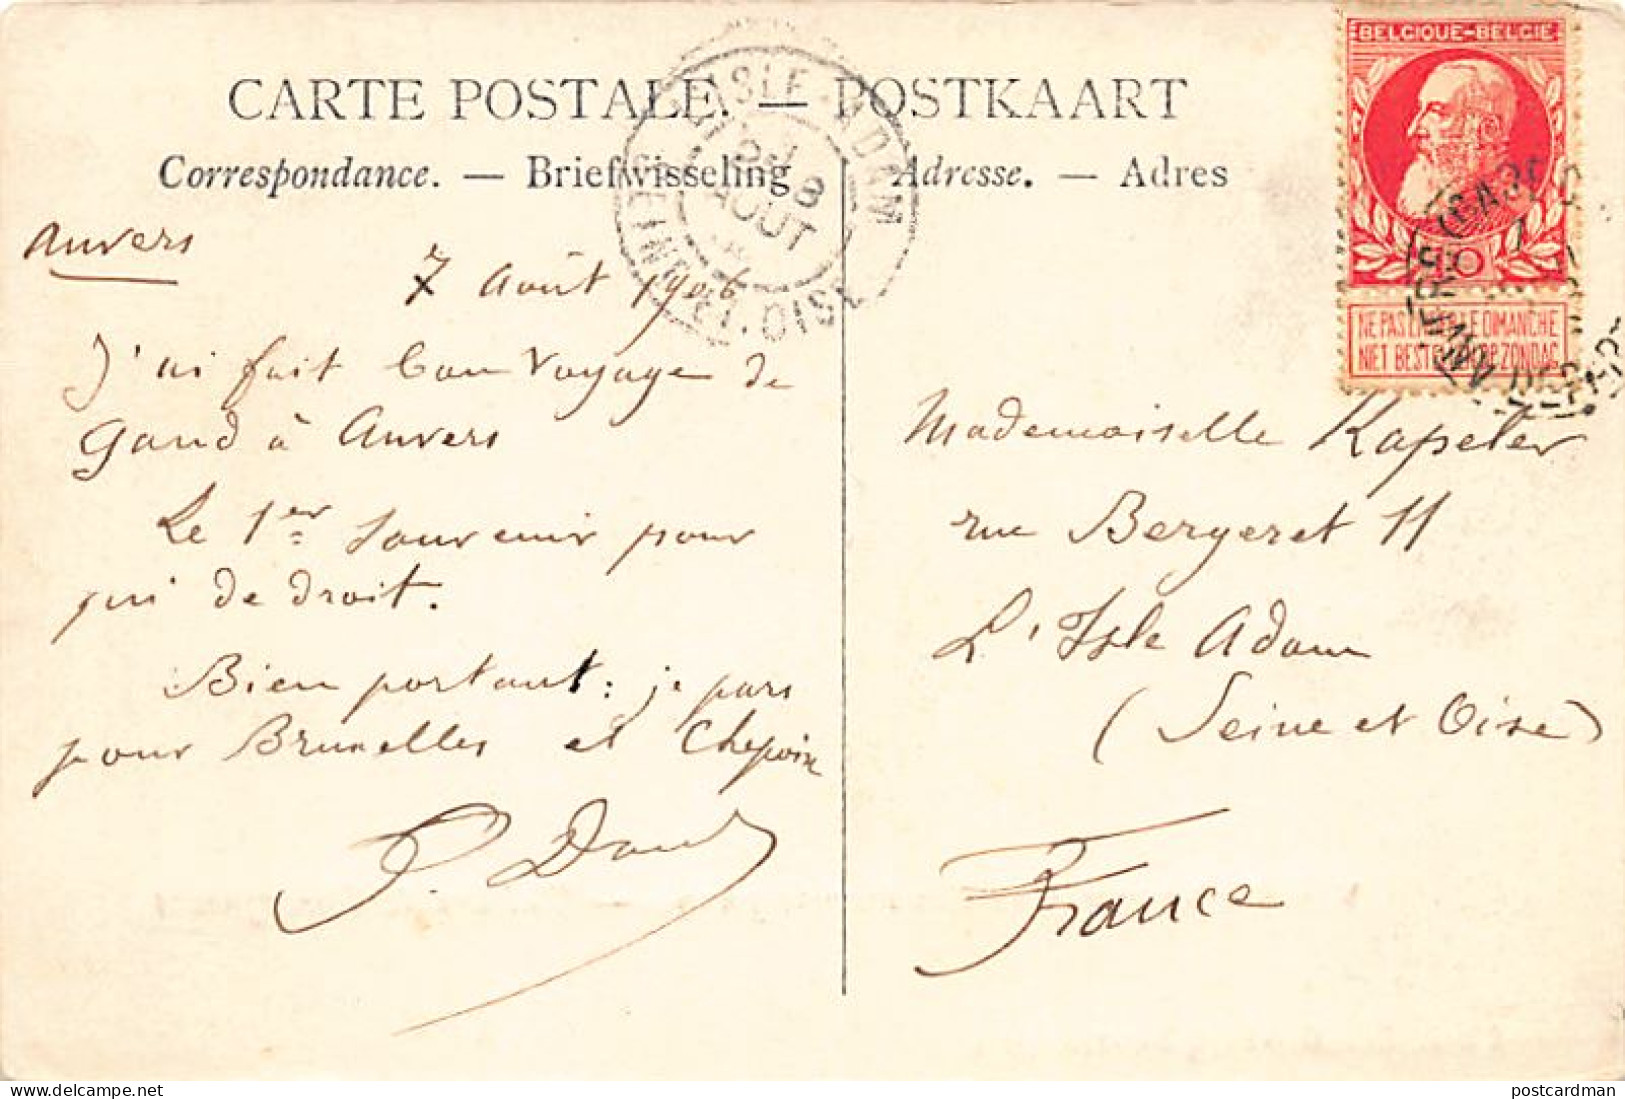 CARTE POSTALE. — POSTKAART
Correspondance. — Briefwisseling
Adresse. — Adres
BELGIQUE-BELGIË
10
NE PAS LIVRER LE DIMANCHE
NIET BESTELLEN OP ZONDAG
L'ISLE-ADAM
8
AOUT
SEINE-ET-OISE
ANVERS (GARE
DEPART
Anvers
7 Août 1906
J'ai fait bon voyage de
Gand à Anvers
Le 1er souvenir pour
qui de droit.
Bien portant: je pars
pour Bruxelles et
Mademoiselle Kapeler
rue Bergeret 11
L'Isle Adam
(Seine et Oise)
France
Delcampe.net
postcardman